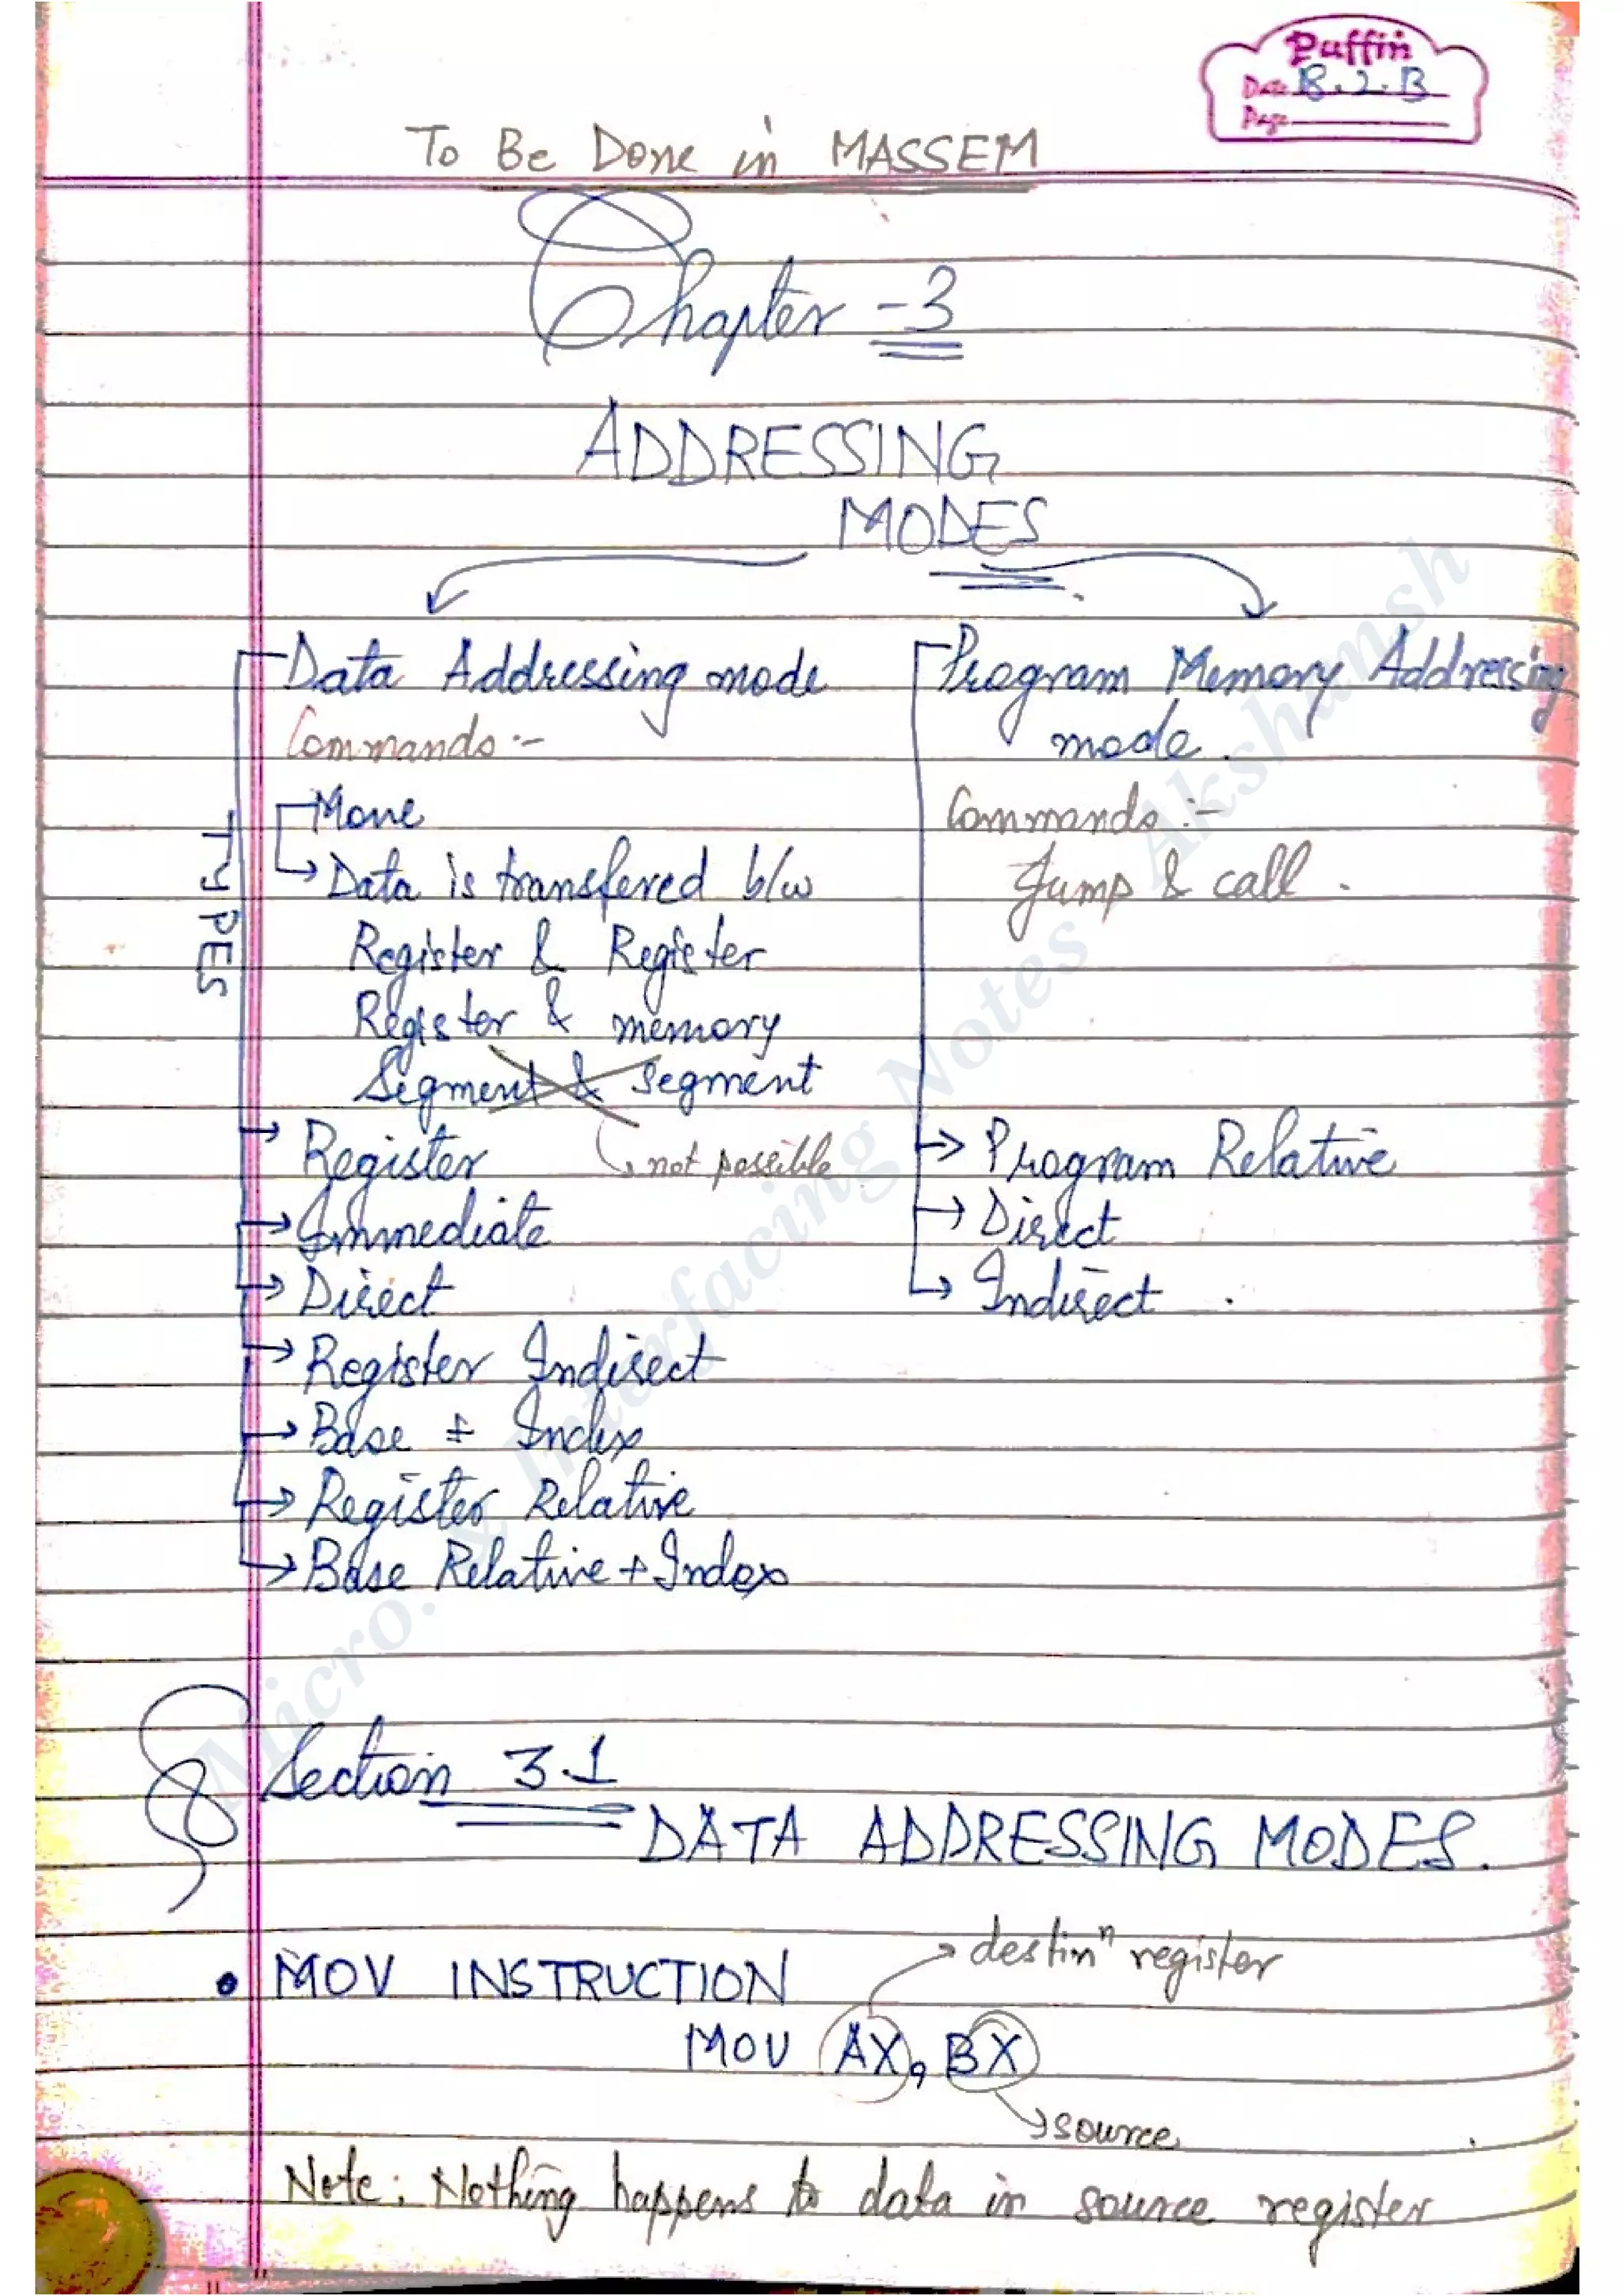 Puffin
Date 18.2.13
Page
To Be Done in MASSEM
Chapter - 3
ADDRESSING
MODES
Data Addressing mode
Commands :-
Move
Data is transfered b/w
Register & Register
Register & memory
Segment & segment
not possible
TYPES
Register
Immediate
Direct
Register Indirect
Base + Index
Register Relative
Base Relative + Index
Program Memory Addressing
mode.
Commands :-
Jump & call.
Program Relative
Direct
Indirect.
Section 3.1
DATA ADDRESSING MODES.
• MOV INSTRUCTION
destinⁿ register
MOV AX, BX
source
Note: Nothing happens to data in source register
Micro. & Interfacing Notes Akshansh